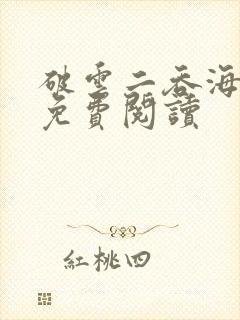 破雲二吞海
免費閱讀
紅桃四